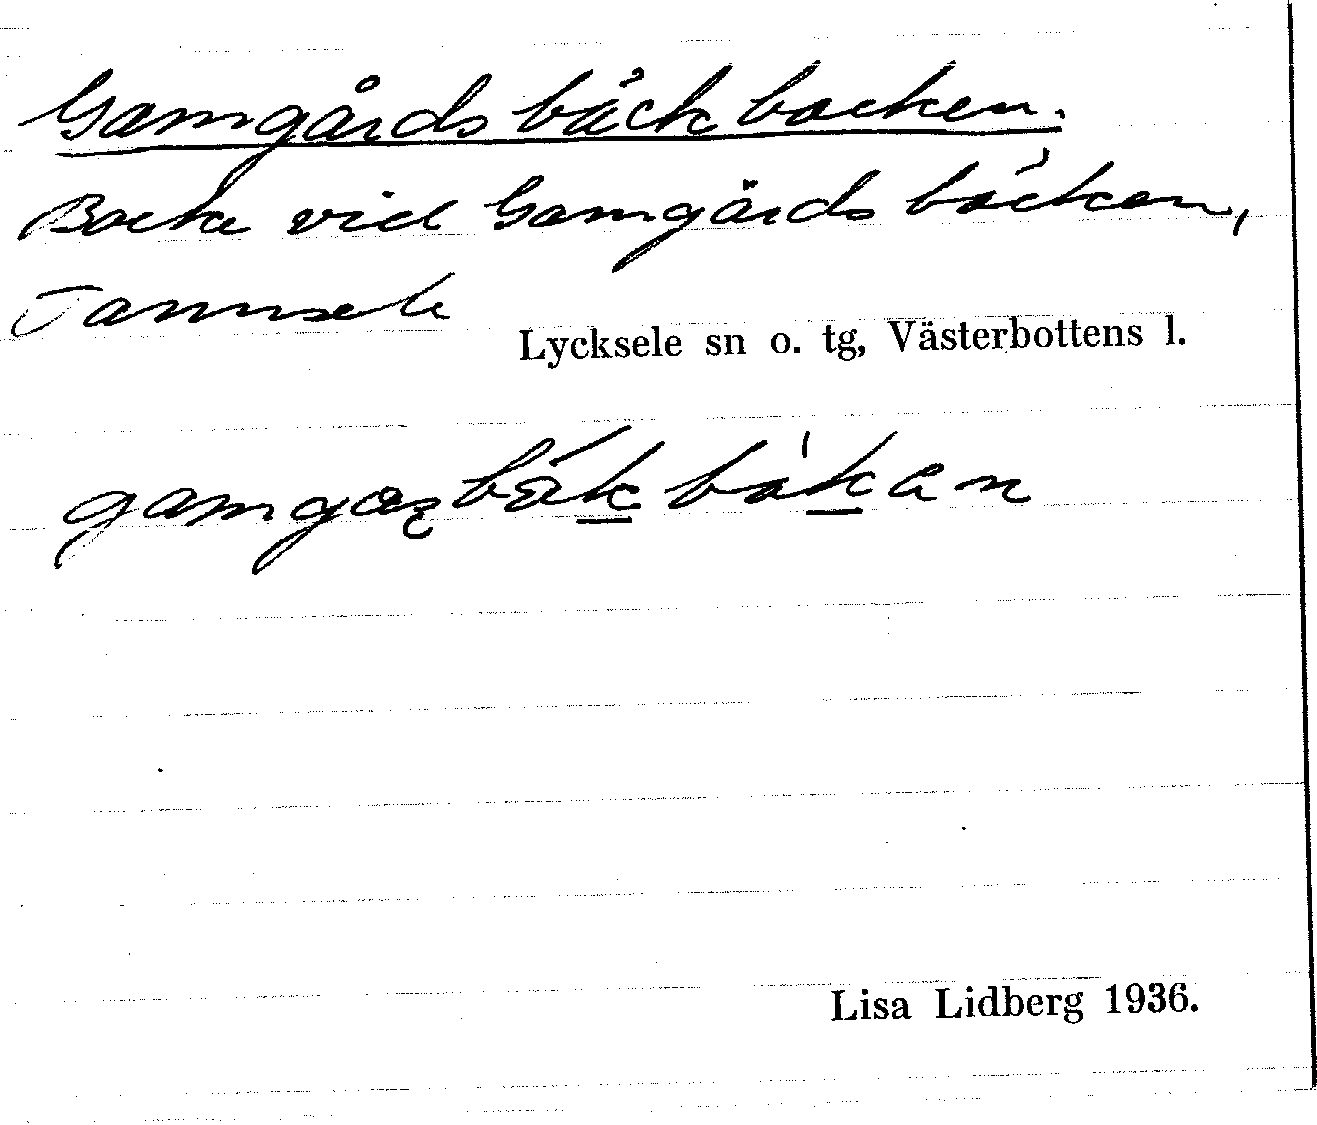 Gamgårdsbäckbacken.
Backe vid Gamgårdsbäcken,
Tannsele
Lycksele sn o. tg, Västerbottens l.
Lisa Lidberg 1936.